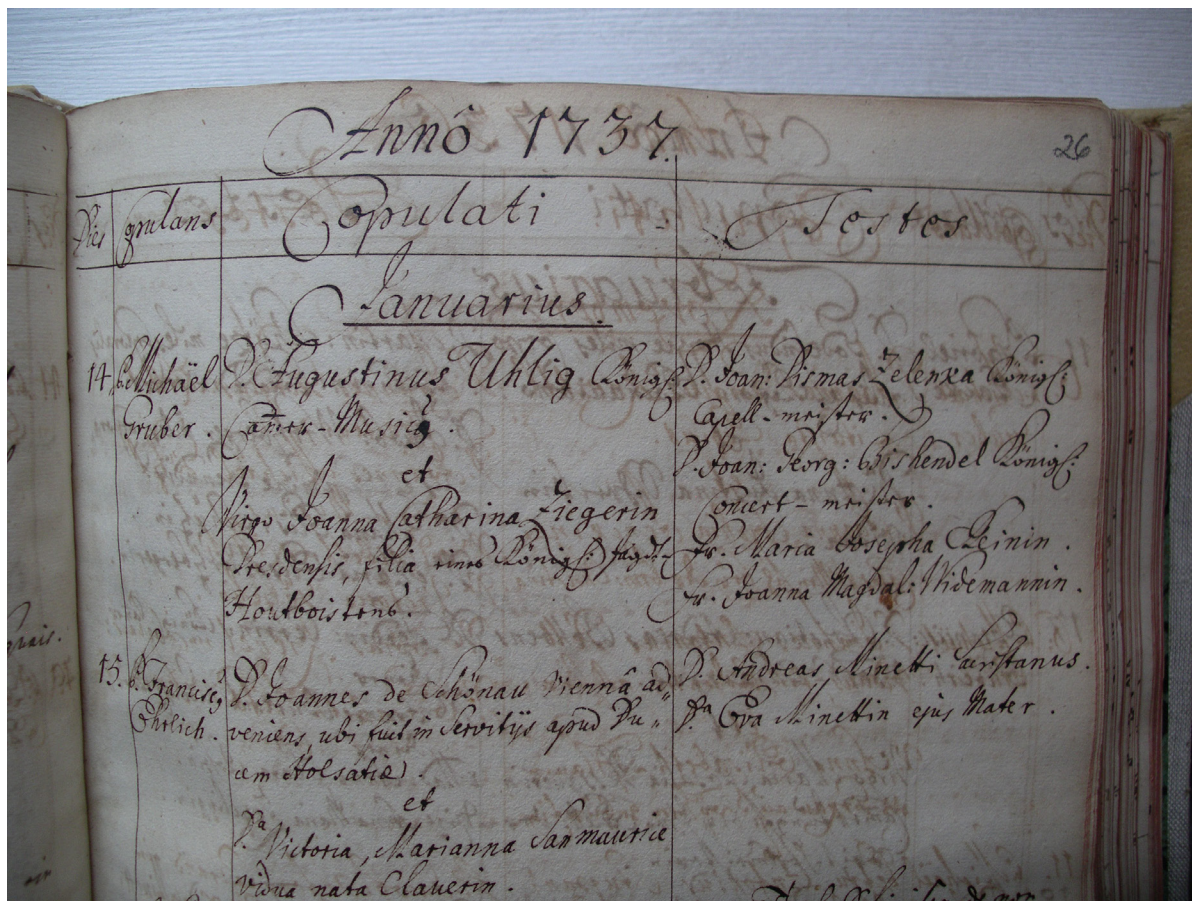 Annô 1737.
26
Dies
Copulans
Copulati
Testes
Januarius.
14.
P. Michäel
Gruber.
D. Augustinus Uhlig Königl:
Cam̄er-Musicg.
et
Virgo Joanna Catharina Ziegerin
Dresdensis, filia eines Königl: Jagdt-
Houtboistens.
D. Joan: Dismas Zelenka Königl:
Capell-meister.
D. Joan: Georg: Bishendel Königl:
Concert-meister.
Fr. Maria Josepha
Fr. Joanna Magdal: Widemannin.
15.
P. Franciscg
Ehrlich.
D. Joannes de Schönau Viennâ ad„
veniens, ubi fuit in Servitijs apud Du„
cem Holsatiæ).
et
Dª Victoria, Marianna Sanmaurice
vidua nata Clauerin.
D. Andreas Minetti Sacristanus.
Dª Eva Minettin ejus Mater.